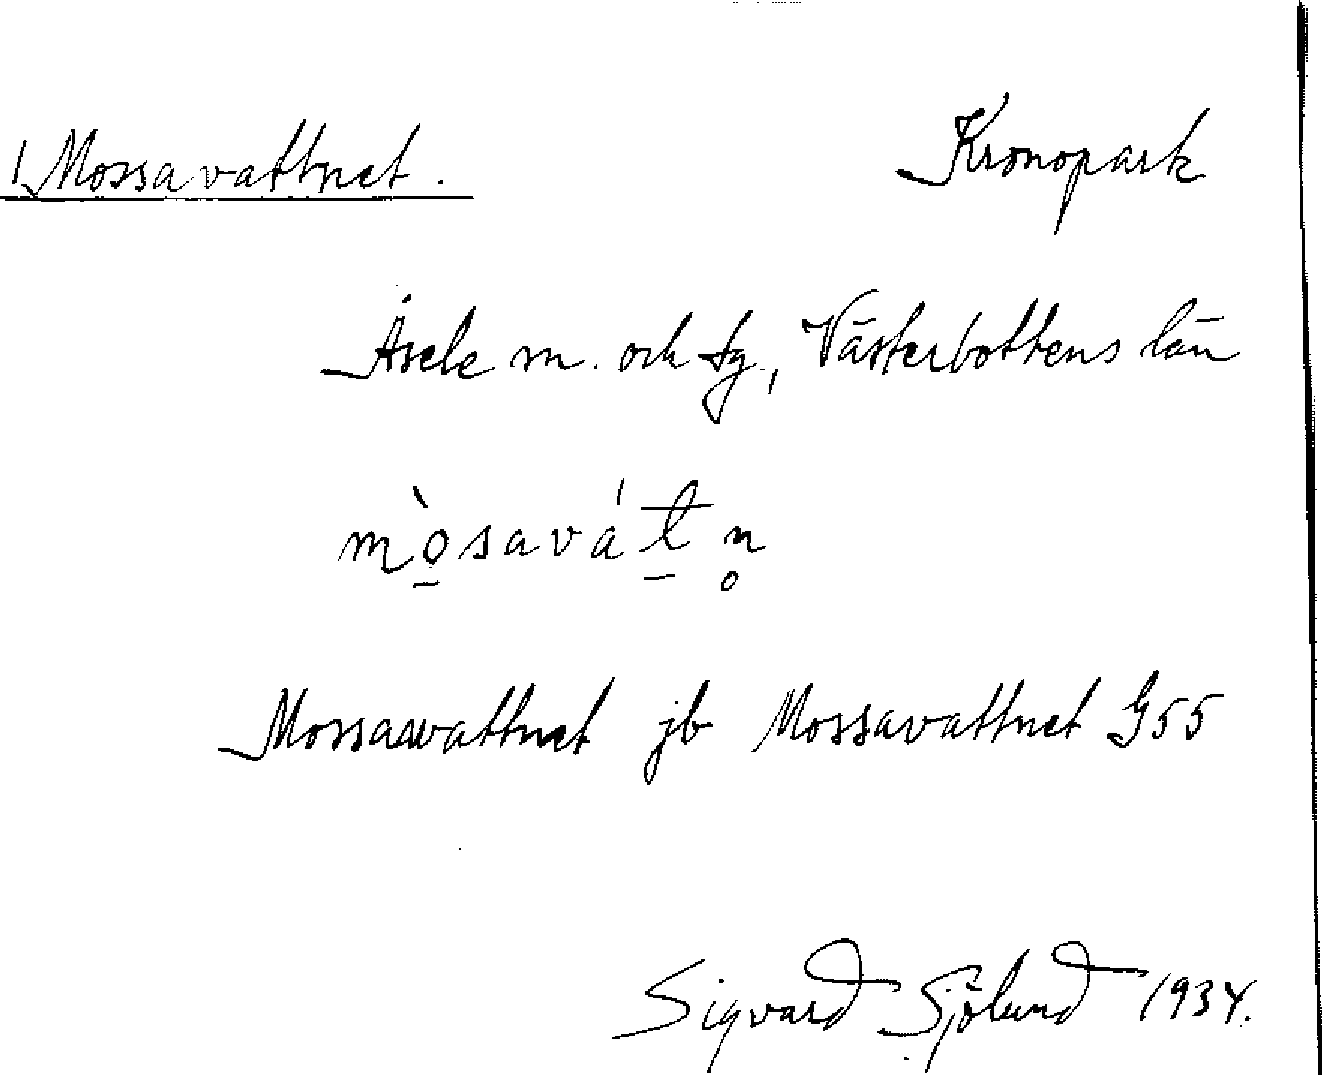 Mossavattnet. Kronopark
Åsele sn. och tg, Västerbottens län
mòsavát n̥
Mossavattnet jb Mossavattnet G55
Sigvard Sjölund 1934.